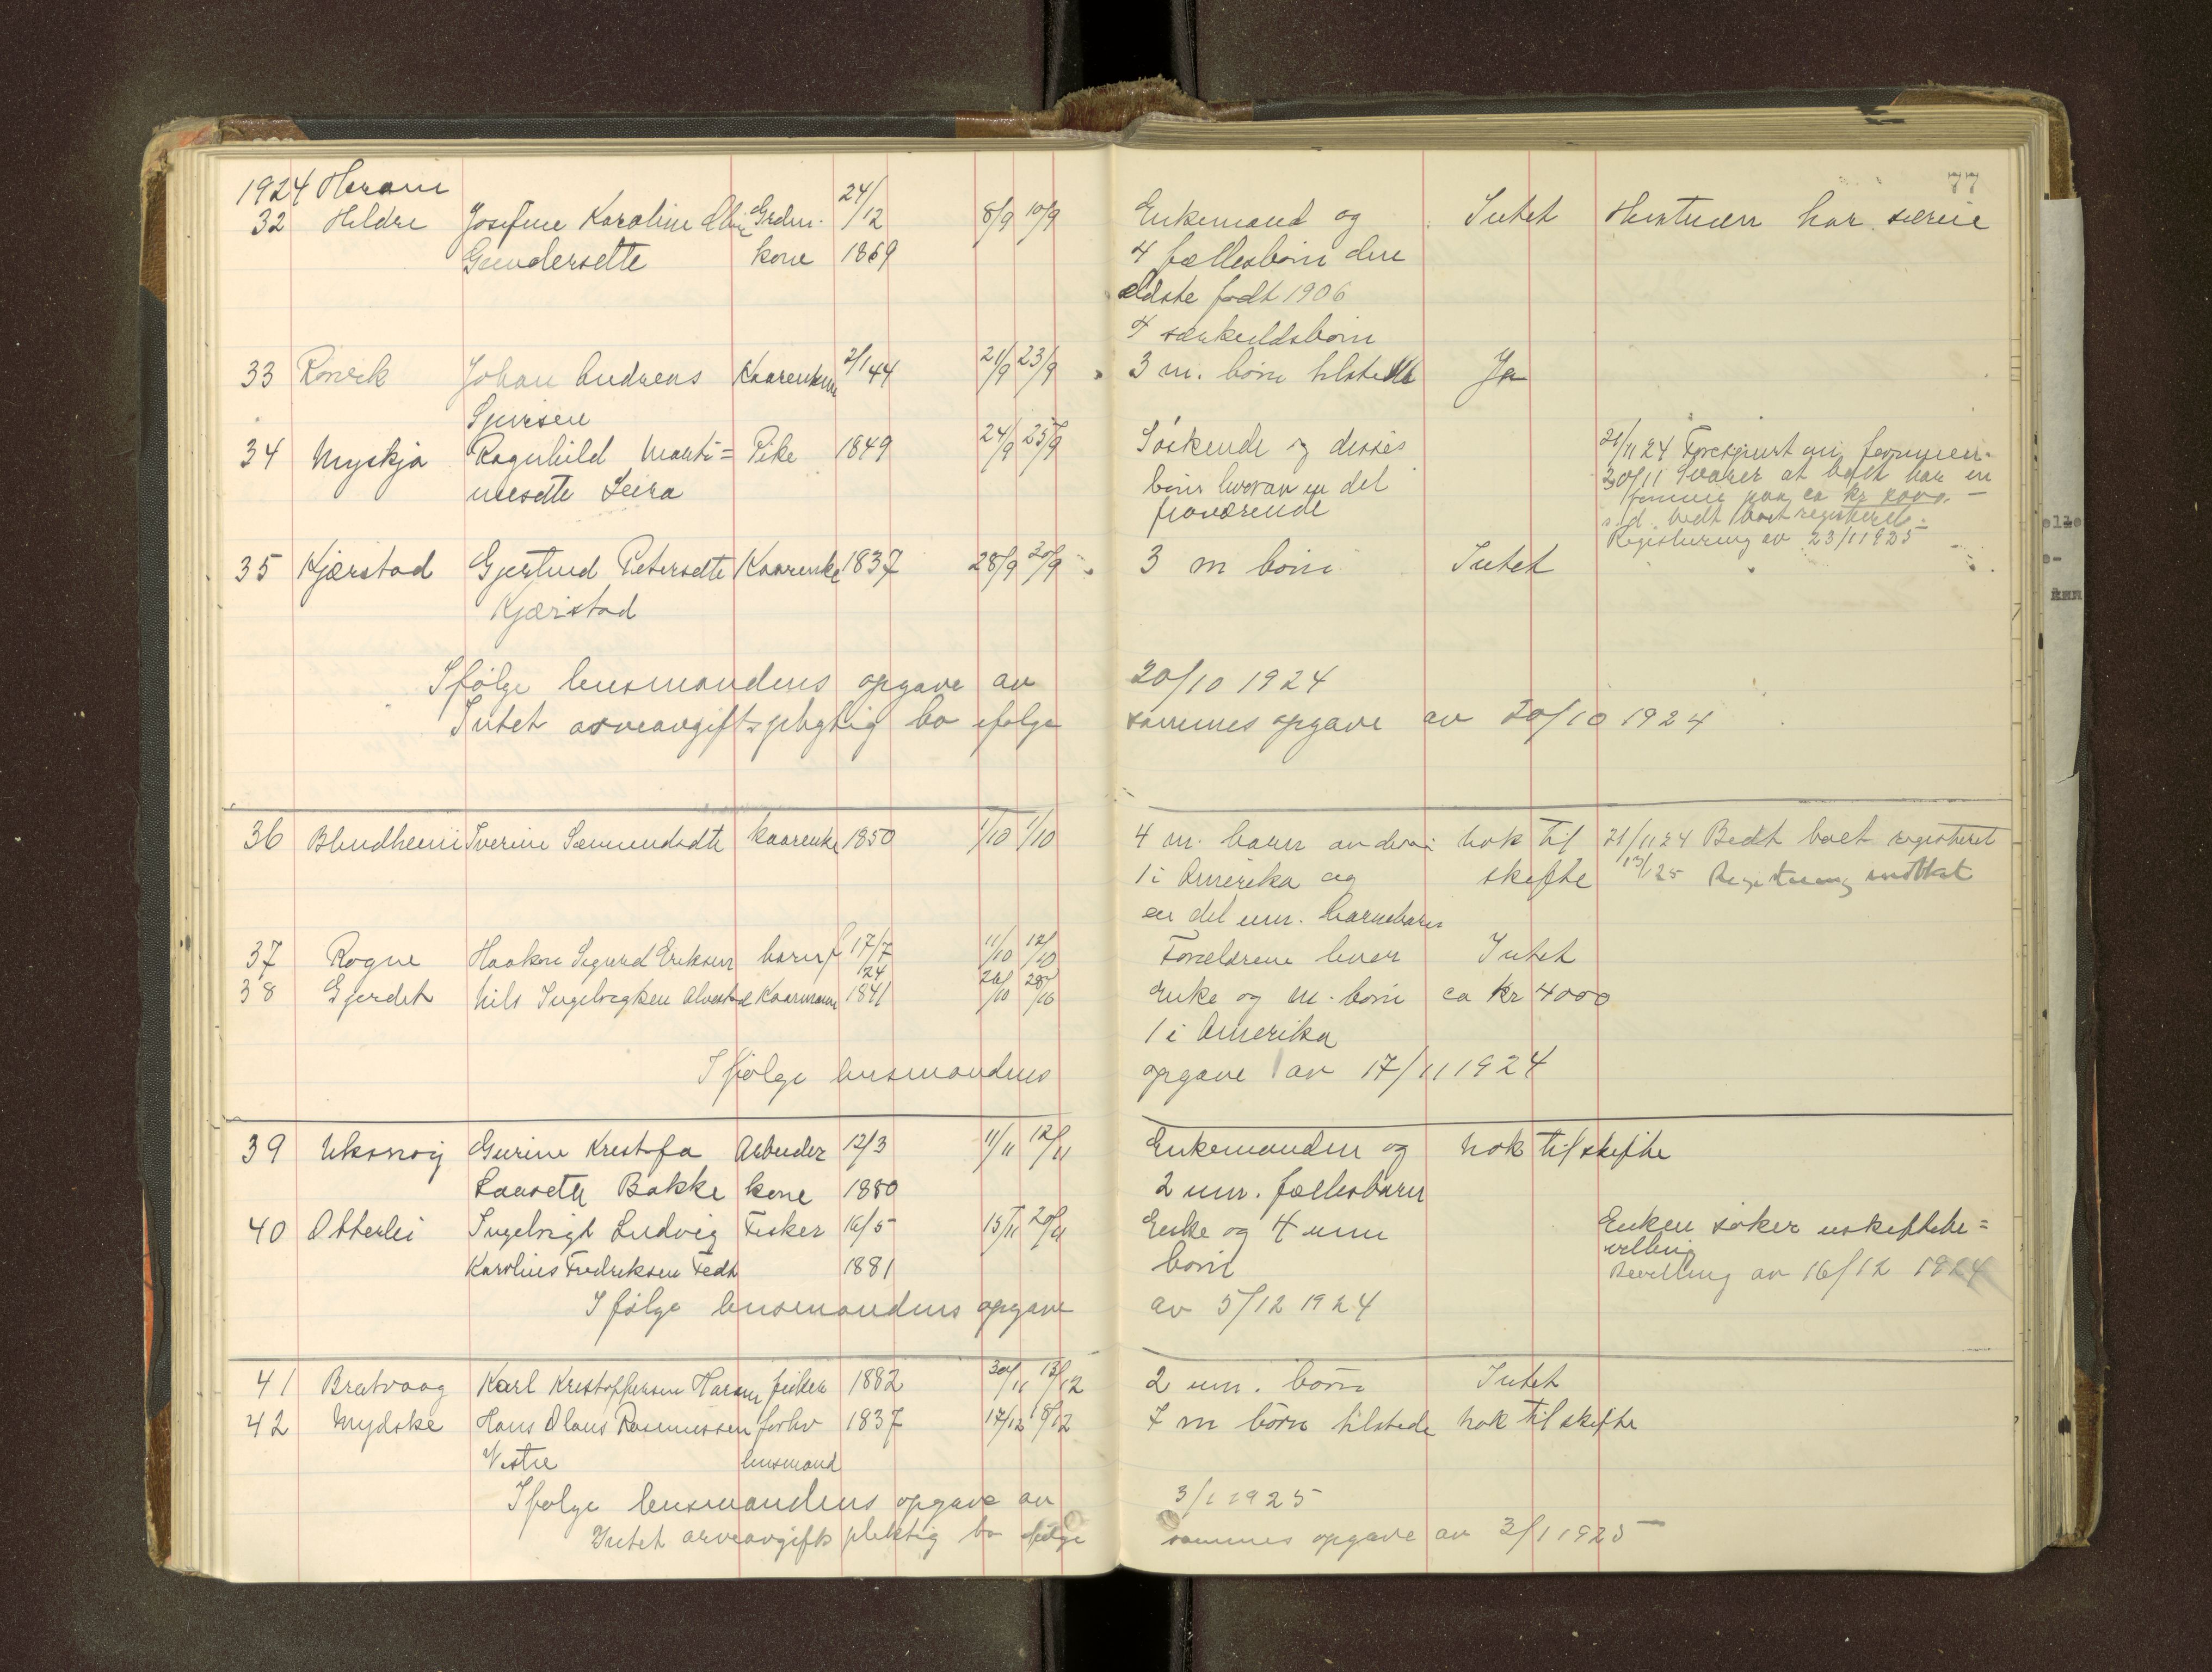 77
1924 Haram
32 Hildre Josefine Karoline Grdm. 24/12 8/9 10/9 Enkemand og Intet særeie
Gundersdtt kone 1869 4 fællesbörn den
ældste født 1906
4 særkuldsbörn
33 Rönvik Johan Andreas Kaarenkem 2/1 44 21/9 23/9 3 m. börn tilstede Ja
Sjursen
34 Myskja Ragnhild Marti= Pike 1849 24/9 25/9 Söskende og disses 21/11 24 Forespurt om formuen.
nusdtt Leira börn hvorav en del 30/11 Svarer at boet har en
fraværende formue paa ca kr
s.d. bedt boet registrert.
Registrering av 23/1 1925
35 Kjærstad Gjertrud Petersdtt Kaarenke 1837 28/9 3 m börn Intet
Kjærstad
Ifölge lensmandens opgave av 20/10 1924
Intet arveavgiftspligtig bo ifölge sammes opgave av 20/10 1924
36 Blindheim Iverine Sæmundsdtt kaarenke 1850 1/10 1/10 4 m. barn av dem nok til 21/11 24 Bedt boet registrert
1 i Amerika og skifte Registrering
en del um. barnebarn
37 Rogne Haakon Sigurd Eriksen barn 17/7 24 11/10 12/10 Forældrene lever Intet
38 Gjerdet Nils Ingebrigtsen Alvestad Kaarmann 1841 26/10 28/10 Enke og m. börn ca kr 4000
1 i Amerika
Ifölge lensmandens opgave av 17/11 1924
39 Uksnöy Gurine Kristofa Arbeider 12/3 11/11 12/11 Enkemanden og nok til skifte
Bakke kone 1880 2 um. fællesbarn
40 Otterlei Ingebrigt Ludvig Fisker 16/5 15/11 20/11 Enke og 4 um Enken söker uskiftebe=
Karolius Fredriksen 1881 börn villing
Bevilling av 16/12 1924
Ifölge lensmandens opgave av 5/12 1924
41 Bratvaag Karl Kristoffersen Haram fisker 1882 30/11 13/12 2 um. börn Intet
42 Mydske Hans Olaus Rasmussen forhv 1837 17/12 7 m börn tilstede nok til skifte
Vestre lensmand
Ifölge lensmandens opgave av 3/1 1925
Intet arveavgifts pliktig bo ifölge sammes opgave av 3/1 1925